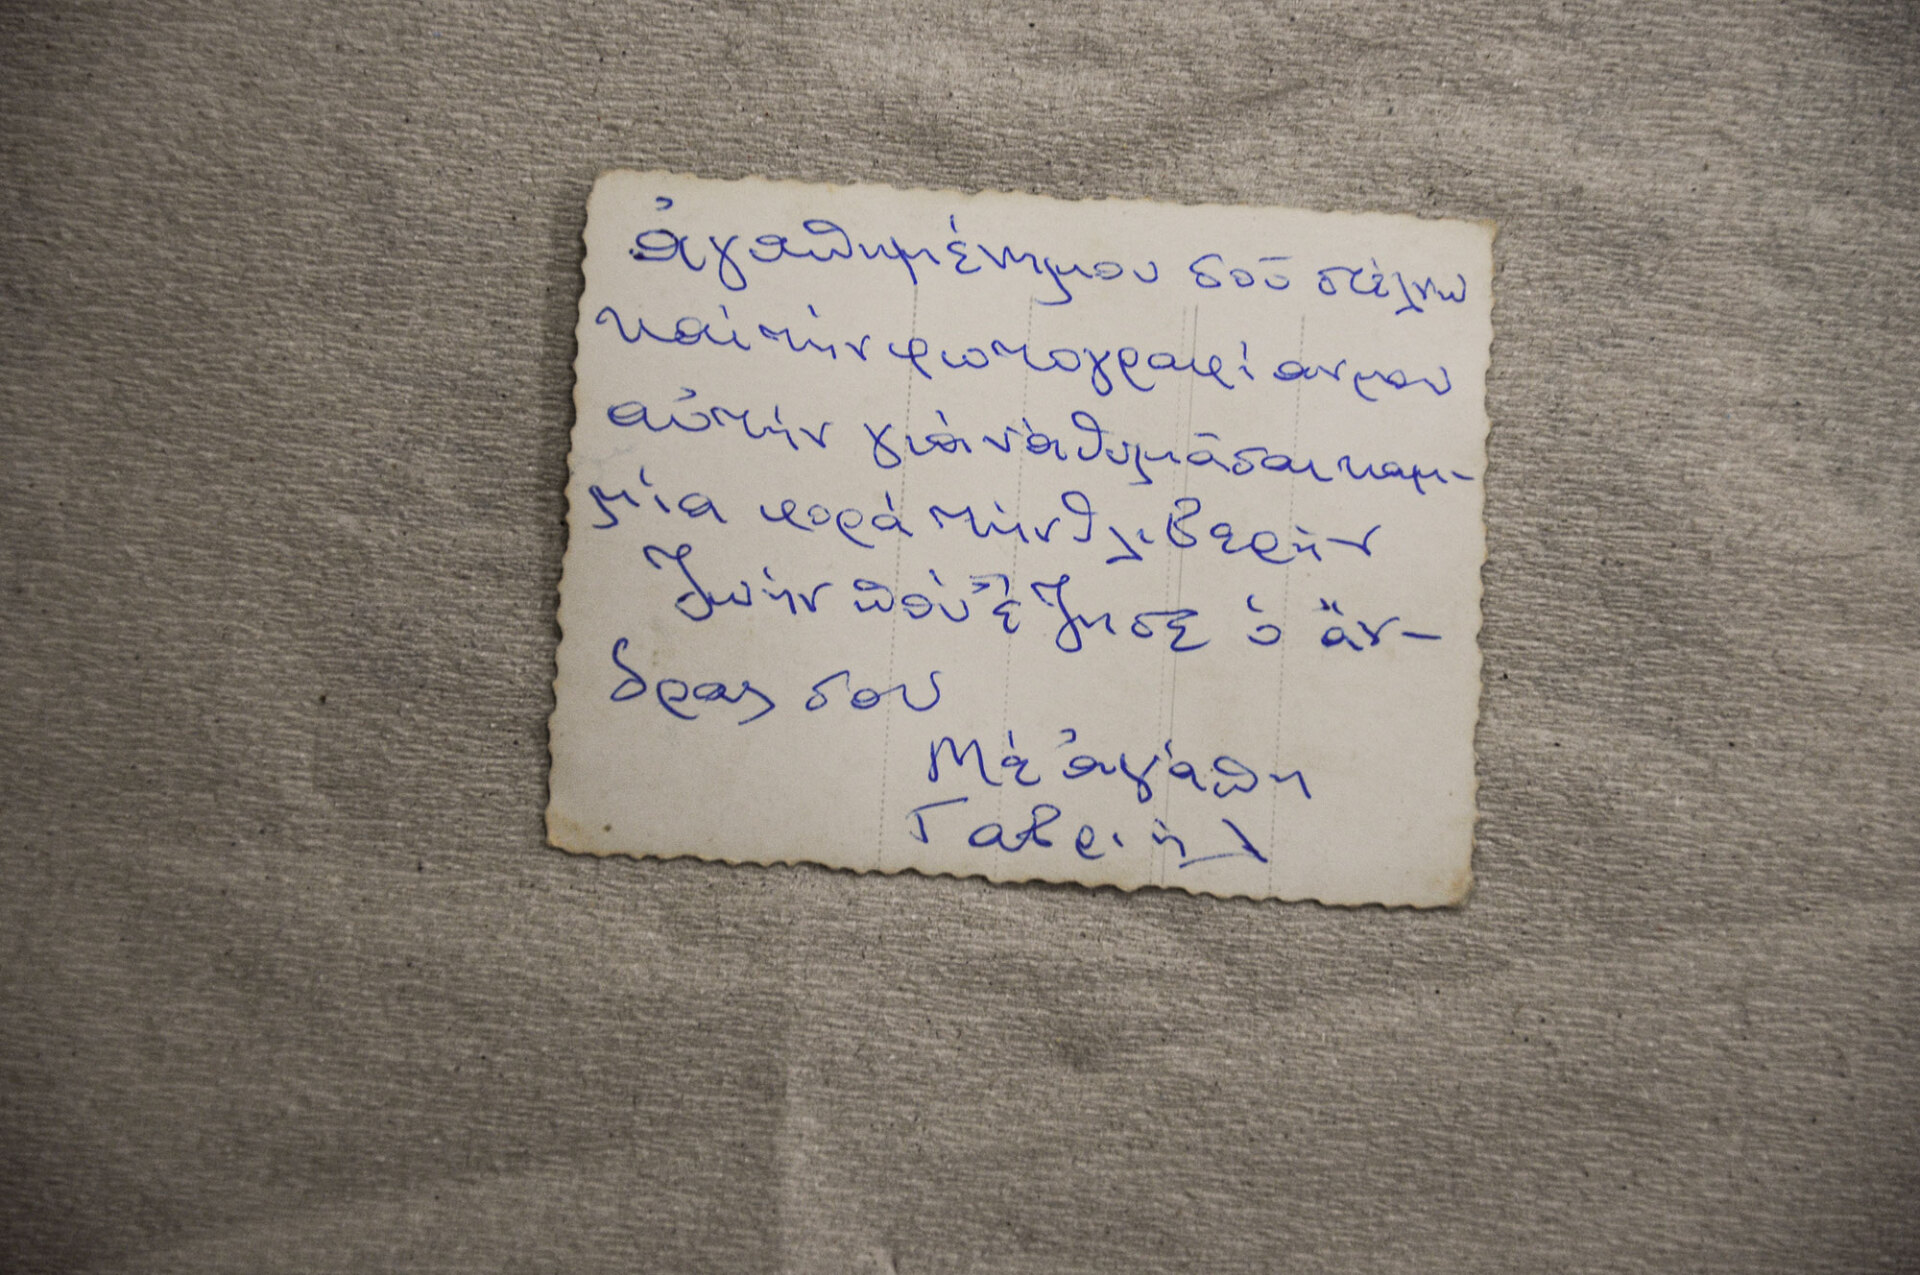 ἀγαπημένη μου σοῦ στέλνω
καί τήν φωτογραφίαν μου
αὐτήν γιά νά θυμᾶσαι καμ-
μία φορά τήν θλιβερήν
ζωήν πού ἔζησε ὁ ἄν-
δρας σου
Μέ ἀγάπη
Γαβριήλ